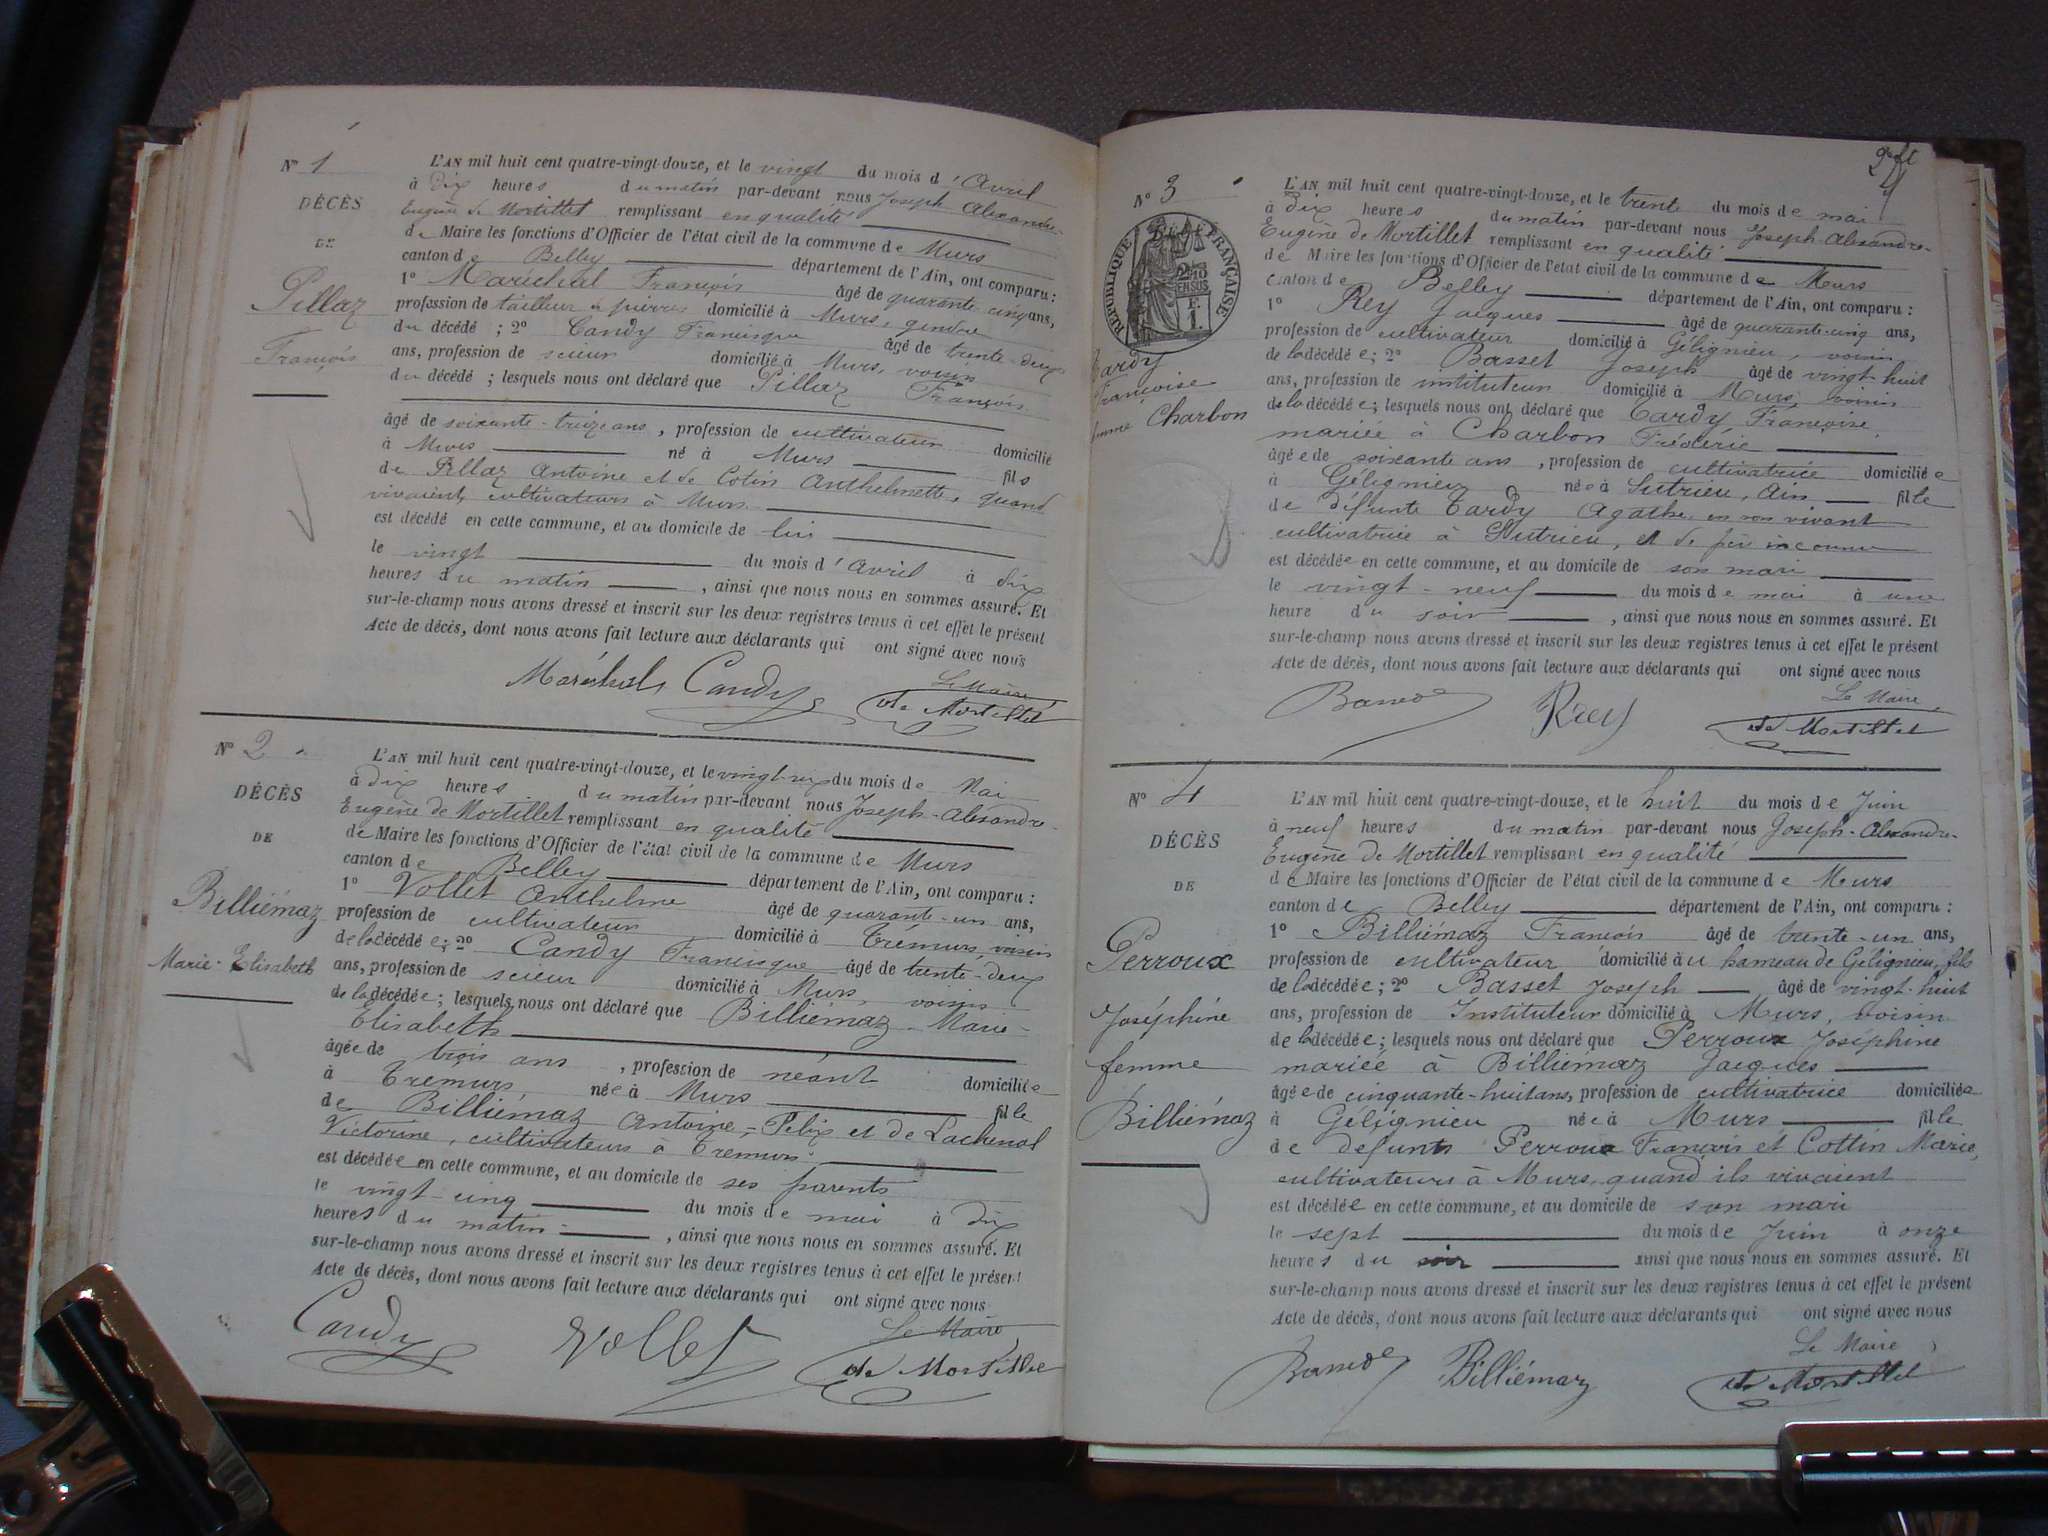 N° 1
DÉCÈS
DE
Pillaz
François
L'AN mil huit cent quatre-vingt-douze, et le vingt du mois d'Avril
à dix heures du matin par-devant nous Joseph Alexandre-
Eugène de Mortillet remplissant en qualité
de Maire les fonctions d'Officier de l'état civil de la commune de Murs
canton de Belley département de l'Ain, ont comparu :
1° Maréchal François âgé de quarante cinq ans,
profession de tailleur de pierres domicilié à Murs, gendre
du décédé ; 2° Candy Francisque âgé de trente-deux
ans, profession de scieur domicilié à Murs, voisin
du décédé ; lesquels nous ont déclaré que Pillaz François
âgé de soixante-treize ans, profession de cultivateur domicilié
à Murs né à Murs fils
de Pillaz Antoine et de Cotin Anthelmette, quand
vivaient, cultivateurs à Murs
est décédé en cette commune, et au domicile de lui
le vingt du mois d'Avril à dix
heures du matin, ainsi que nous nous en sommes assuré. Et
sur-le-champ nous avons dressé et inscrit sur les deux registres tenus à cet effet le présent
Acte de décès, dont nous avons fait lecture aux déclarants qui ont signé avec nous
Maréchal Candy Le Maire
de Mortillet
N° 2
DÉCÈS
DE
Billiémaz
Marie-Elisabeth
L'AN mil huit cent quatre-vingt-douze, et le vingt-six du mois de Mai
à dix heures du matin par-devant nous Joseph-Alexandre-
Eugène de Mortillet remplissant en qualité
de Maire les fonctions d'Officier de l'état civil de la commune de Murs
canton de Belley département de l'Ain, ont comparu :
1° Vollet Anthelme âgé de quarante-un ans,
profession de cultivateur domicilié à Trémurs, voisin
de la décédée ; 2° Candy Francisque âgé de trente-deux
ans, profession de scieur domicilié à Murs, voisin
de la décédée ; lesquels nous ont déclaré que Billiémaz Marie-
Elisabeth
âgée de trois ans, profession de néant domiciliée
à Tremurs née à Murs fille
de Billiémaz Antoine-Félix et de Lachenal
Victorine, cultivateurs à Tremurs
est décédée en cette commune, et au domicile de ses parents
le vingt-cinq du mois de mai à dix
heures du matin, ainsi que nous nous en sommes assuré. Et
sur-le-champ nous avons dressé et inscrit sur les deux registres tenus à cet effet le présent
Acte de décès, dont nous avons fait lecture aux déclarants qui ont signé avec nous
Candy Vollet Le Maire
de Mortillet
N° 3
RÉPUBLIQUE FRANÇAISE
Tardy
Françoise
femme Charbon
L'AN mil huit cent quatre-vingt-douze, et le trente du mois de mai
à dix heures du matin par-devant nous Joseph-Alexandre-
Eugène de Mortillet remplissant en qualité
de Maire les fonctions d'Officier de l'état civil de la commune de Murs
canton de Belley département de l'Ain, ont comparu :
1° Rey Jacques âgé de quarante-cinq ans,
profession de cultivateur domicilié à Gélignieu, voisin
de la décédée ; 2° Basset Joseph âgé de vingt-huit
ans, profession de instituteur domicilié à Murs, voisin
de la décédée ; lesquels nous ont déclaré que Tardy Françoise,
mariée à Charbon Frédéric
âgée de soixante ans, profession de cultivatrice domiciliée
à Gélignieu née à Sutrieu, Ain fille
de défunte Tardy Agathe en son vivant
cultivatrice à Sutrieu, et de père inconnu
est décédée en cette commune, et au domicile de son mari
le vingt-neuf du mois de mai à une
heure du soir, ainsi que nous nous en sommes assuré. Et
sur-le-champ nous avons dressé et inscrit sur les deux registres tenus à cet effet le présent
Acte de décès, dont nous avons fait lecture aux déclarants qui ont signé avec nous
Rey Le Maire
de Mortillet
N° 4
DÉCÈS
DE
Perroux
Joséphine
femme
Billiémaz
L'AN mil huit cent quatre-vingt-douze, et le huit du mois de Juin
à neuf heures du matin par-devant nous Joseph-Alexandre-
Eugène de Mortillet remplissant en qualité
de Maire les fonctions d'Officier de l'état civil de la commune de Murs
canton de Belley département de l'Ain, ont comparu :
1° Billiémaz François âgé de trente-un ans,
profession de cultivateur domicilié au hameau de Gélignieu, fils
de la décédée ; 2° Basset Joseph âgé de vingt-huit
ans, profession de Instituteur domicilié à Murs, voisin
de la décédée ; lesquels nous ont déclaré que Perroux Joséphine
mariée à Billiémaz Jacques
âgée de cinquante-huit ans, profession de cultivatrice domiciliée
à Gélignieu née à Murs fille
de defunts Perroux François et Cottin Marie,
cultivateurs à Murs, quand ils vivaient
est décédée en cette commune, et au domicile de son mari
le sept du mois de Juin à onze
heures du soir ainsi que nous nous en sommes assuré. Et
sur-le-champ nous avons dressé et inscrit sur les deux registres tenus à cet effet le présent
Acte de décès, dont nous avons fait lecture aux déclarants qui ont signé avec nous
Billiémaz Le Maire
de Mortillet